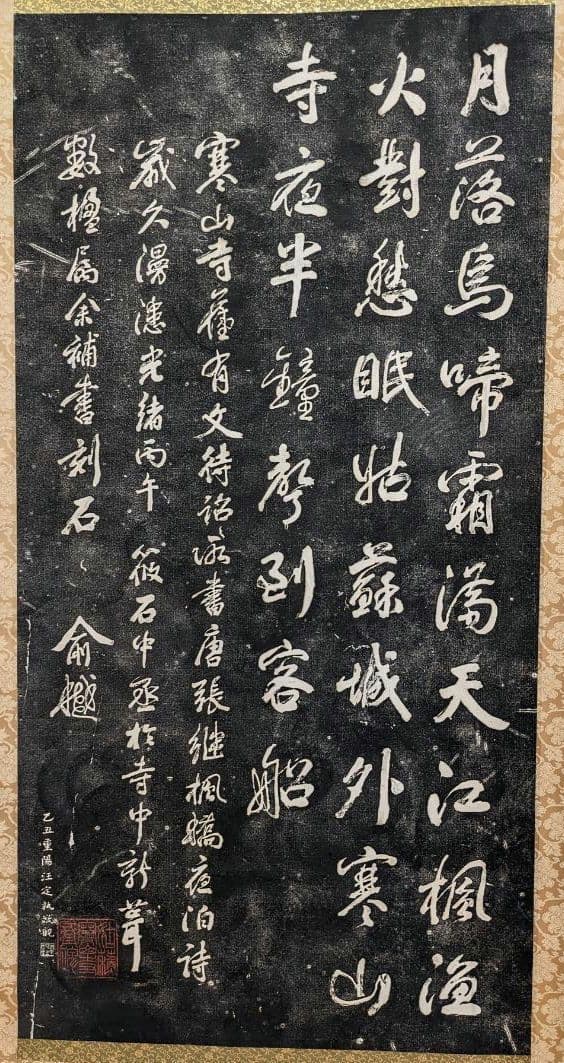 月落烏啼霜滿天江楓漁
火對愁眠姑蘇城外寒山
寺夜半鐘聲到客船
寒山寺舊有文待詔所書唐張繼楓橋夜泊詩
歲久漫漶光緒丙午筱石中丞於寺中新葺
數楹屬余補書刻石 俞樾
乙丑重陽汪定執敬觀